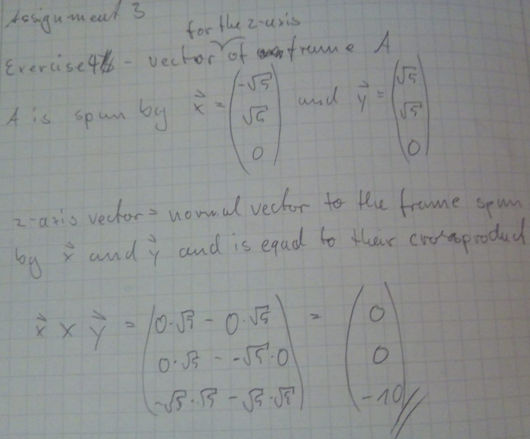 Assignment 3
for the z-axis
Exercise 4 - vector of frame A
A is spun by x⃗ = (-√5 √5 0) and y⃗ = (√5 √5 0)
z-axis vector = normal vector to the frame spun
by x⃗ and y⃗ and is equal to their crossproduct
x⃗ × y⃗ = (0·√5 - 0·√5 = (0
0·√5 - -√5·0 0
-√5·√5 - √5·√5) -10)